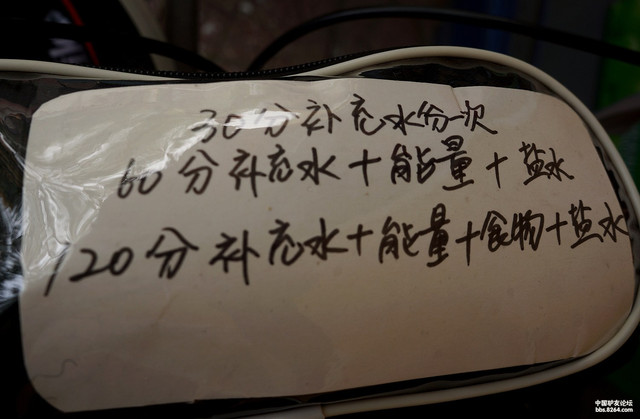 30分补充水份一次
60分补充水+能量+盐水
120分补充水+能量+食物+盐水
中国驴友论坛
bbs.8264.com